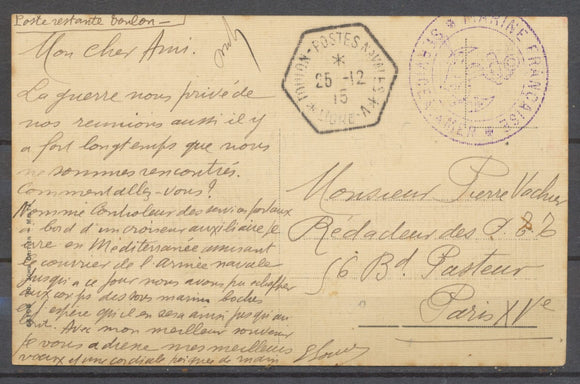 Poste restante Toulon —
Mon cher Ami.
La guerre nous privé de
nos reunions aussi il y
a fort longtemps que nous
ne sommes rencontrés.
Comment allez-vous?
Nommé Controleur des services postaux
a bord d'un croiseur auxiliaire, je
en Méditerranée assurant
le courrier de l'Armée navale
jusqu'a ce jour nous avons pu échapper
aux coups des sous marins boches
et j'espère qu'il en sera ainsi jusqu'au
bout. Avec mon meilleur souvenir
Je vous adresse mes meilleurs
voeux et une cordiale poignée de main
TOULON - POSTES NAVALES
*
25 -12
15
* LIGNE-V *
* MARINE FRANÇAISE *
SERVICE A LA MER
Monsieur Pierre Vacher
Rédacteur des P. & T.
56 Bd Pasteur
Paris XVe